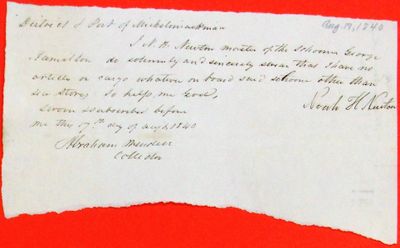 Aug. 19, 1840
District & Port of Michilimackinac
I N. H. Newton master of the schooner George
Hamilton do solemnly and sincerely swear that I have no
articles or cargo whatever on board said schooner other than
sea stores So help me God,
Noah H. Newton
Sworn & subscribed before
me this day of Aug 1840
Abraham
Collector